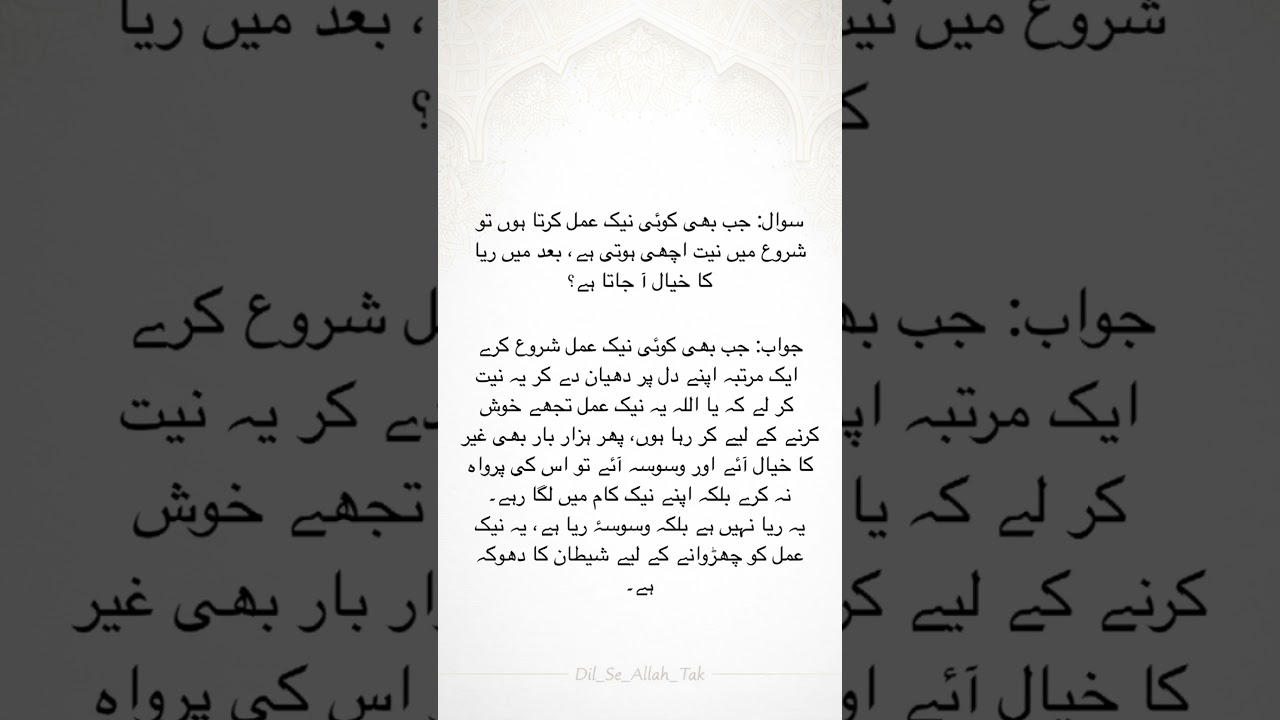 سوال: جب بھی کوئی نیک عمل کرتا ہوں تو
شروع میں نیت اچھی ہوتی ہے، بعد میں ریا
کا خیال آ جاتا ہے؟
جواب: جب بھی کوئی نیک عمل شروع کرے
ایک مرتبہ اپنے دل پر دھیان دے کر یہ نیت
کر لے کہ یا اللہ یہ نیک عمل تجھے خوش
کرنے کے لیے کر رہا ہوں، پھر ہزار بار بھی غیر
کا خیال آئے اور وسوسہ آئے تو اس کی پرواہ
نہ کرے بلکہ اپنے نیک کام میں لگا رہے۔
یہ ریا نہیں ہے بلکہ وسوسۂ ریا ہے، یہ نیک
عمل کو چھڑوانے کے لیے شیطان کا دھوکہ
ہے۔
Dil_Se_Allah_Tak